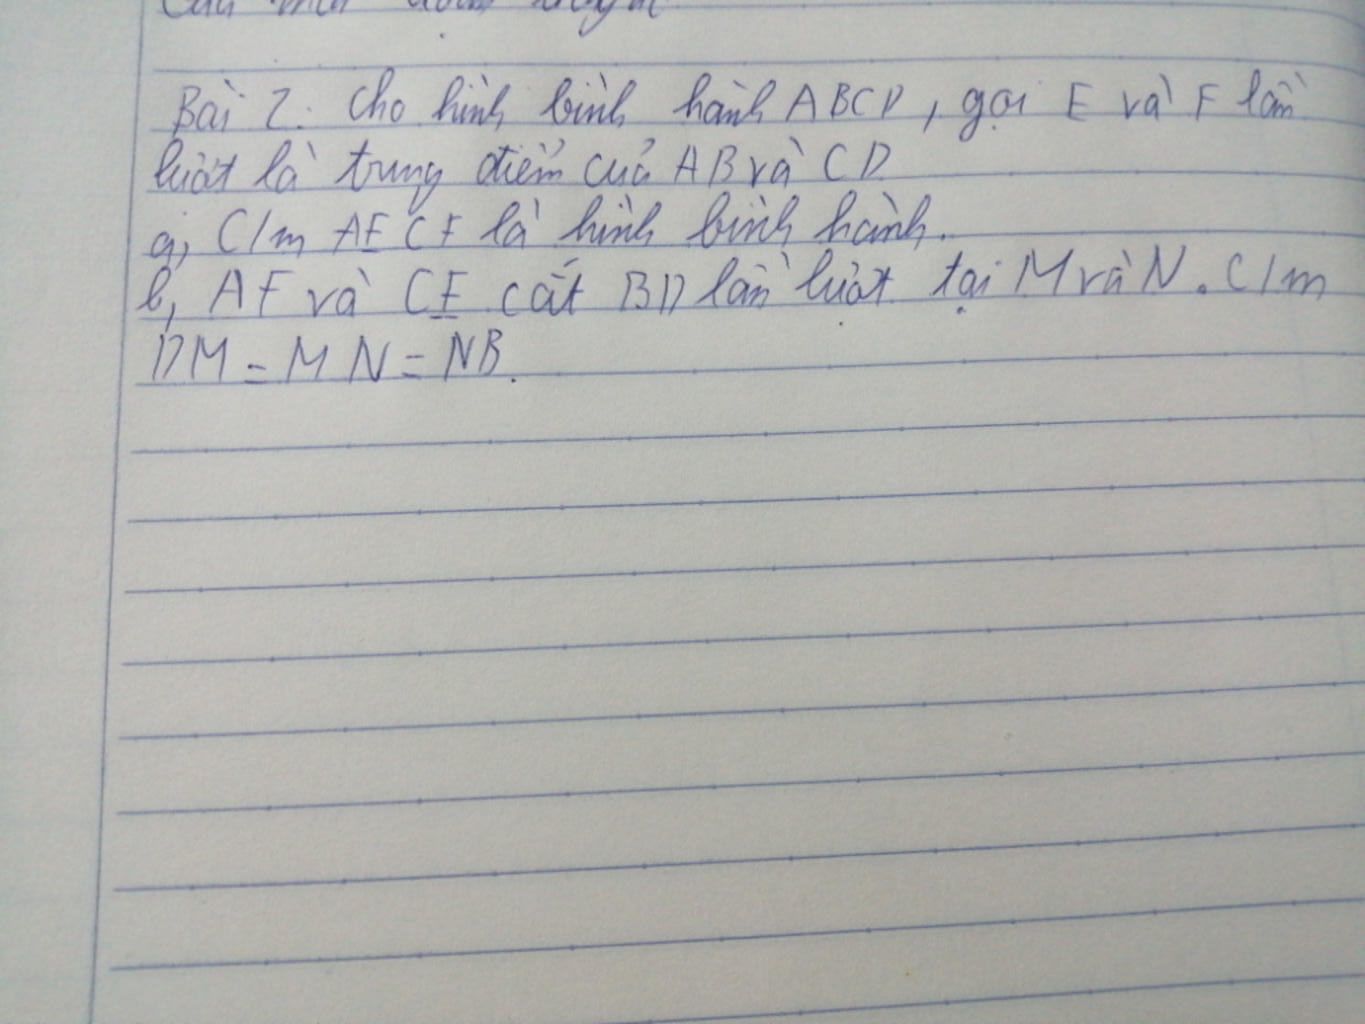 Bài 2. Cho hình bình hành ABCD, gọi E và F lần
lượt là trung điểm của AB và CD
a, C/m AECF là hình bình hành.
b, AF và CE cắt BD lần lượt tại M và N. C/m
DM = MN = NB.